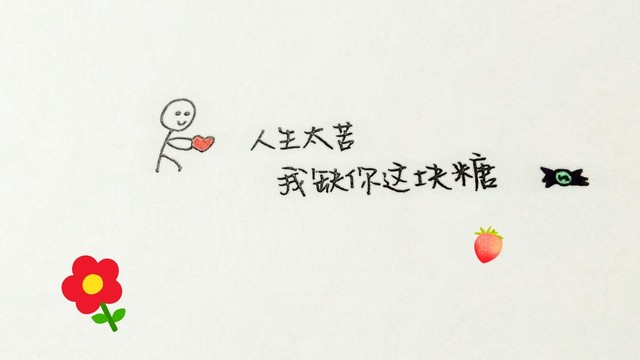 人生太苦
我缺你这块糖